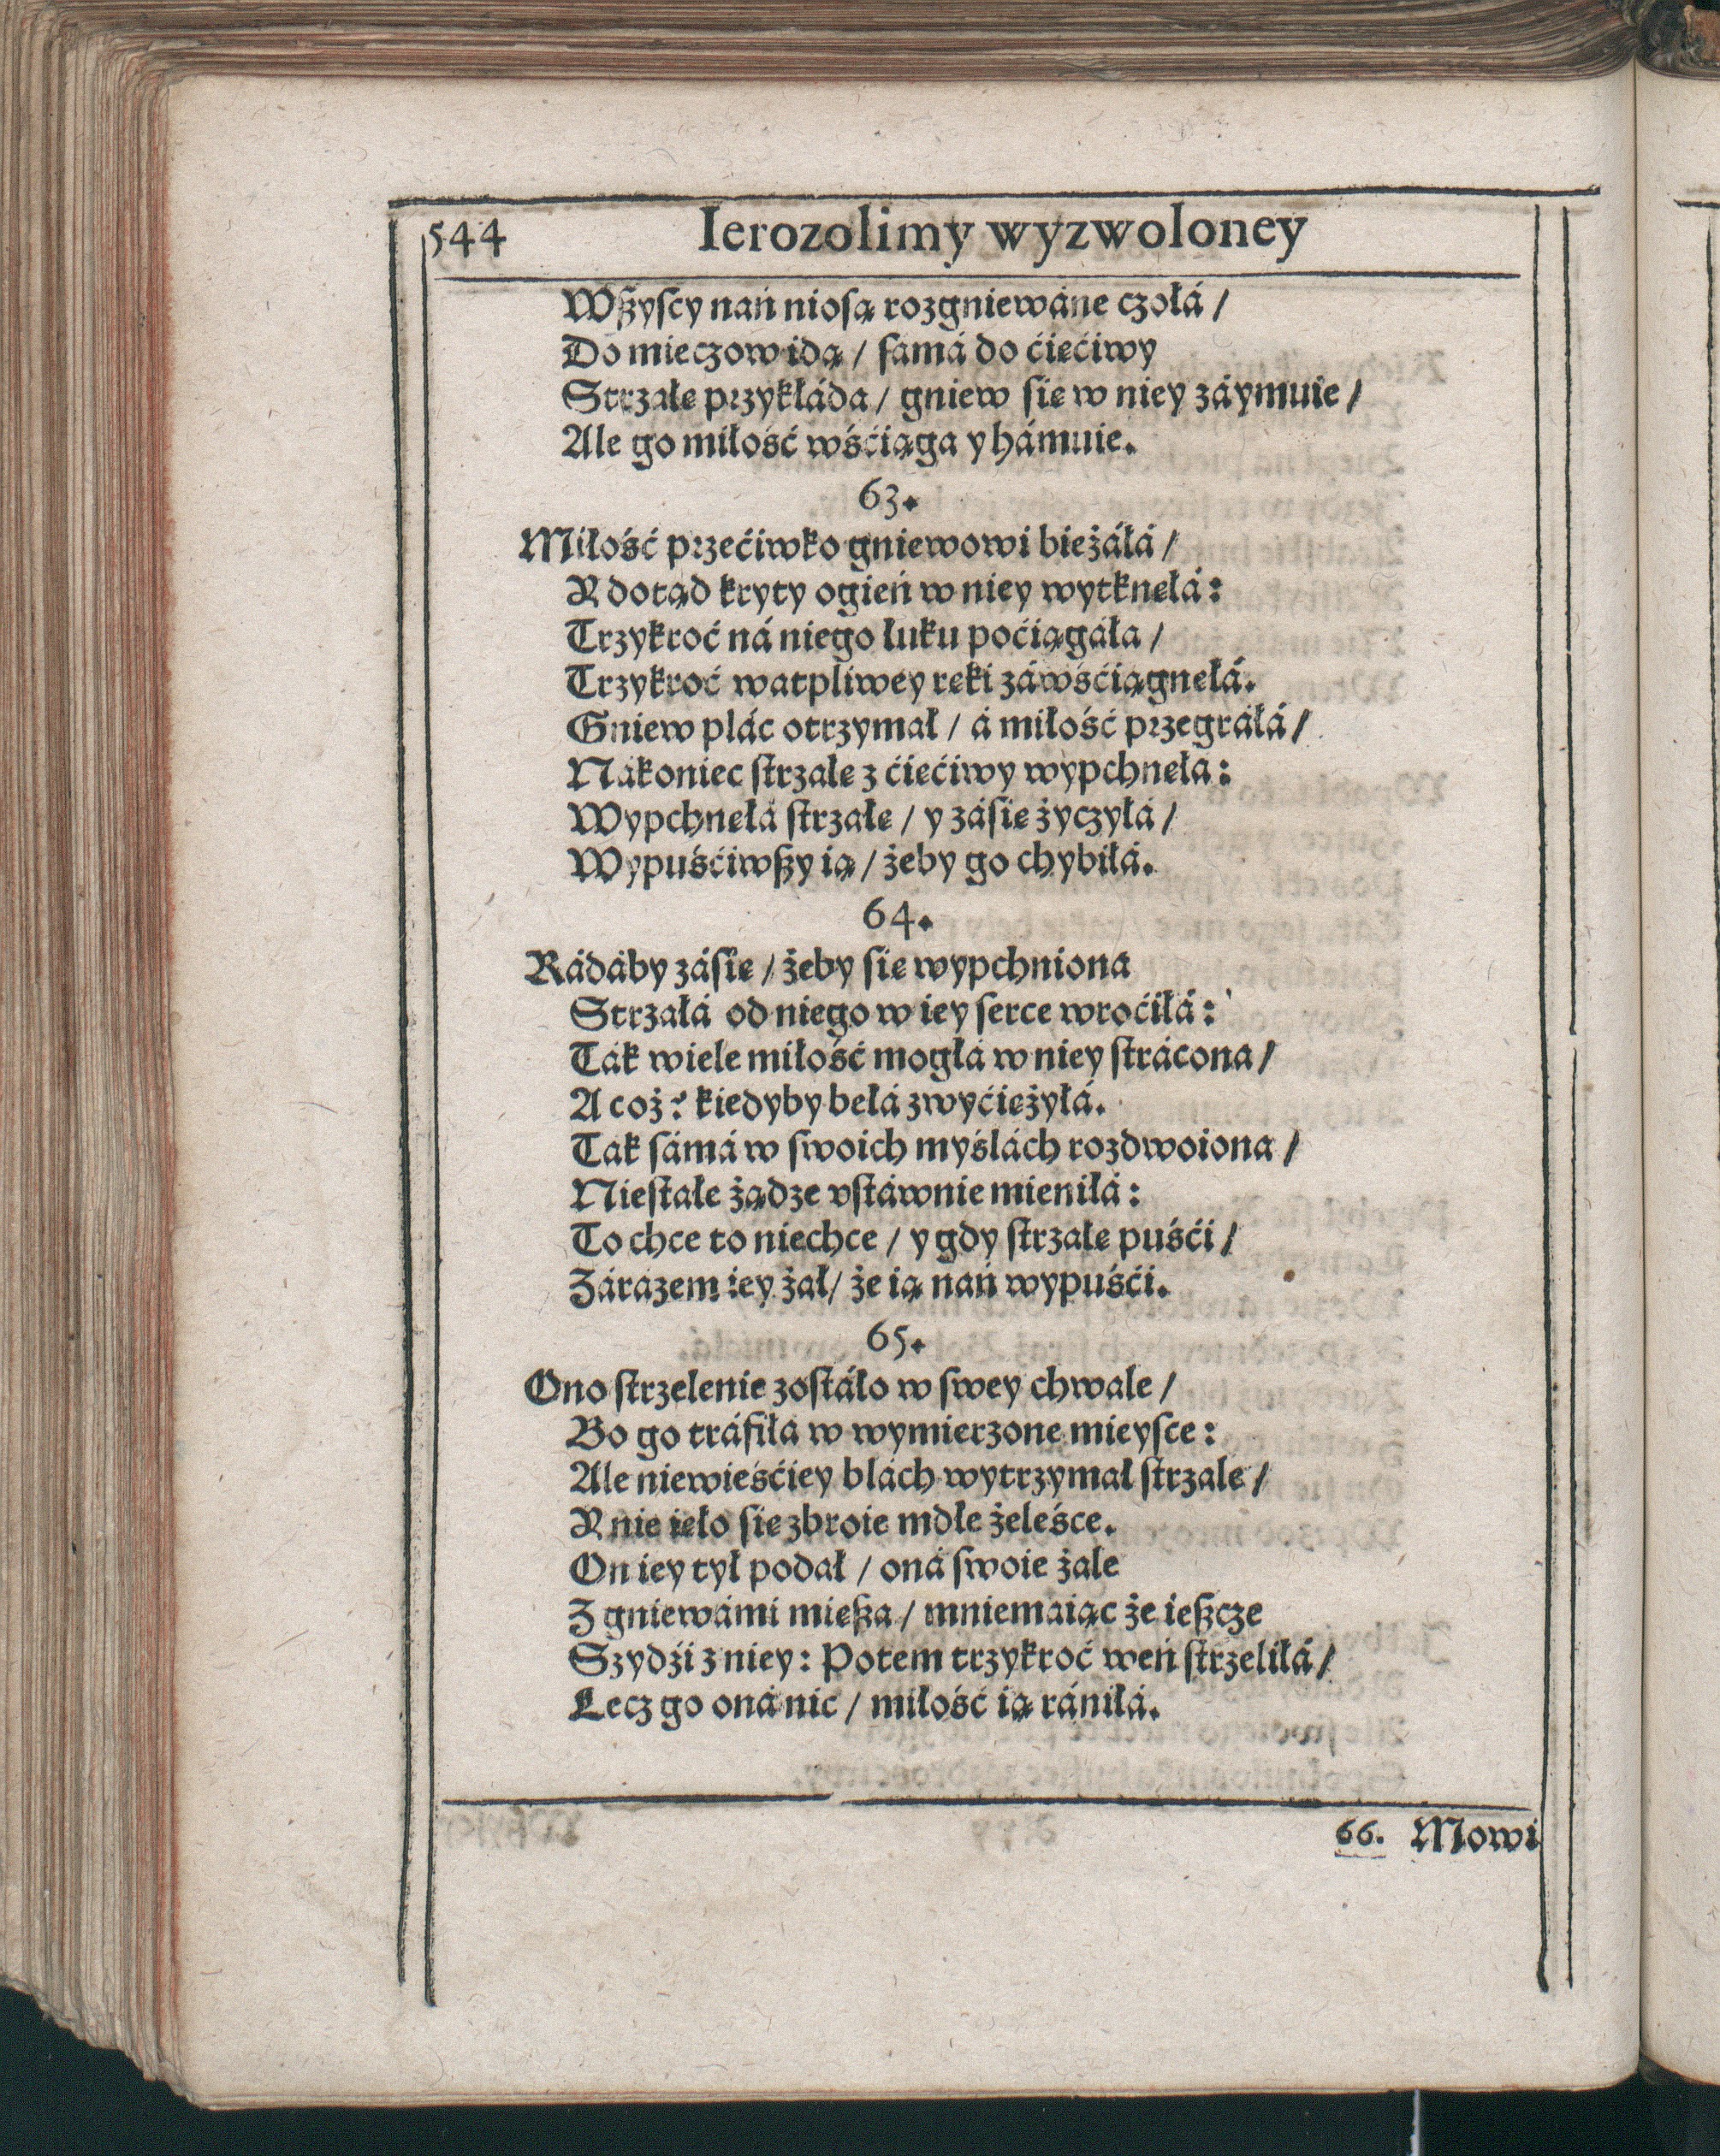 544 Ierozolimy wyzwoloney
Wßyſcy nań nioſą rozgniewáne czołá /
Do mieczow idą / ſámá do ćięćiwy
Strzałę przykłáda / gniew ſię w niey záymuie /
Ale go miłość wśćiąga y hámuie.
63.
Miłość przećiwko gniewowi bieżáłá /
Y dotąd kryty ogień w niey wytknęłá:
Trzykroć ná niego łuku poćiągáła /
Trzykroć wątpliwey ręki záwśćiągnęłá.
Gniew plác otrzymał / á miłość przegráłá /
Nákoniec ſtrzałę z ćięćiwy wypchnęła:
Wypchnęłá ſtrzałę / y záśię życzyłá /
Wypuśćiwßy ią / żeby go chybiłá.
64.
Rádáby záśię / żeby ſię wypchniona
Strzałá od niego w iey ſerce wroćiłá:
Ták wiele miłość mogłá w niey ſtrácona /
A coż? kiedyby belá zwyćiężyłá.
Ták ſámá w ſwoich myślách rozdwoiona /
Nieſtałe żądze vſtáwnie mieniłá:
To chce to niechce / y gdy ſtrzałę puśći /
Zárázem iey żal / że ią nań wypuśći.
65.
Ono ſtrzelenie zoſtáło w ſwey chwale /
Bo go tráfiłá w wymierzone mieyſce:
Ale niewieśćiey blách wytrzymał ſtrzale /
Y nie ięło ſię zbroie mdłe żeleśce.
On iey tył podał / oná ſwoie żale
Z gniewámi mießa / mniemaiąc że ießcze
Szydźi z niey: Potem trzykroć weń ſtrzeliłá /
Lecz go oná nic / miłość ią rániłá.
66. Mowi